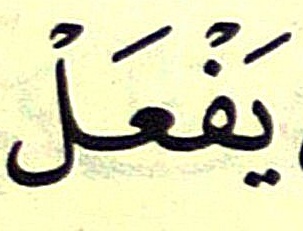 يَفْعَلْ